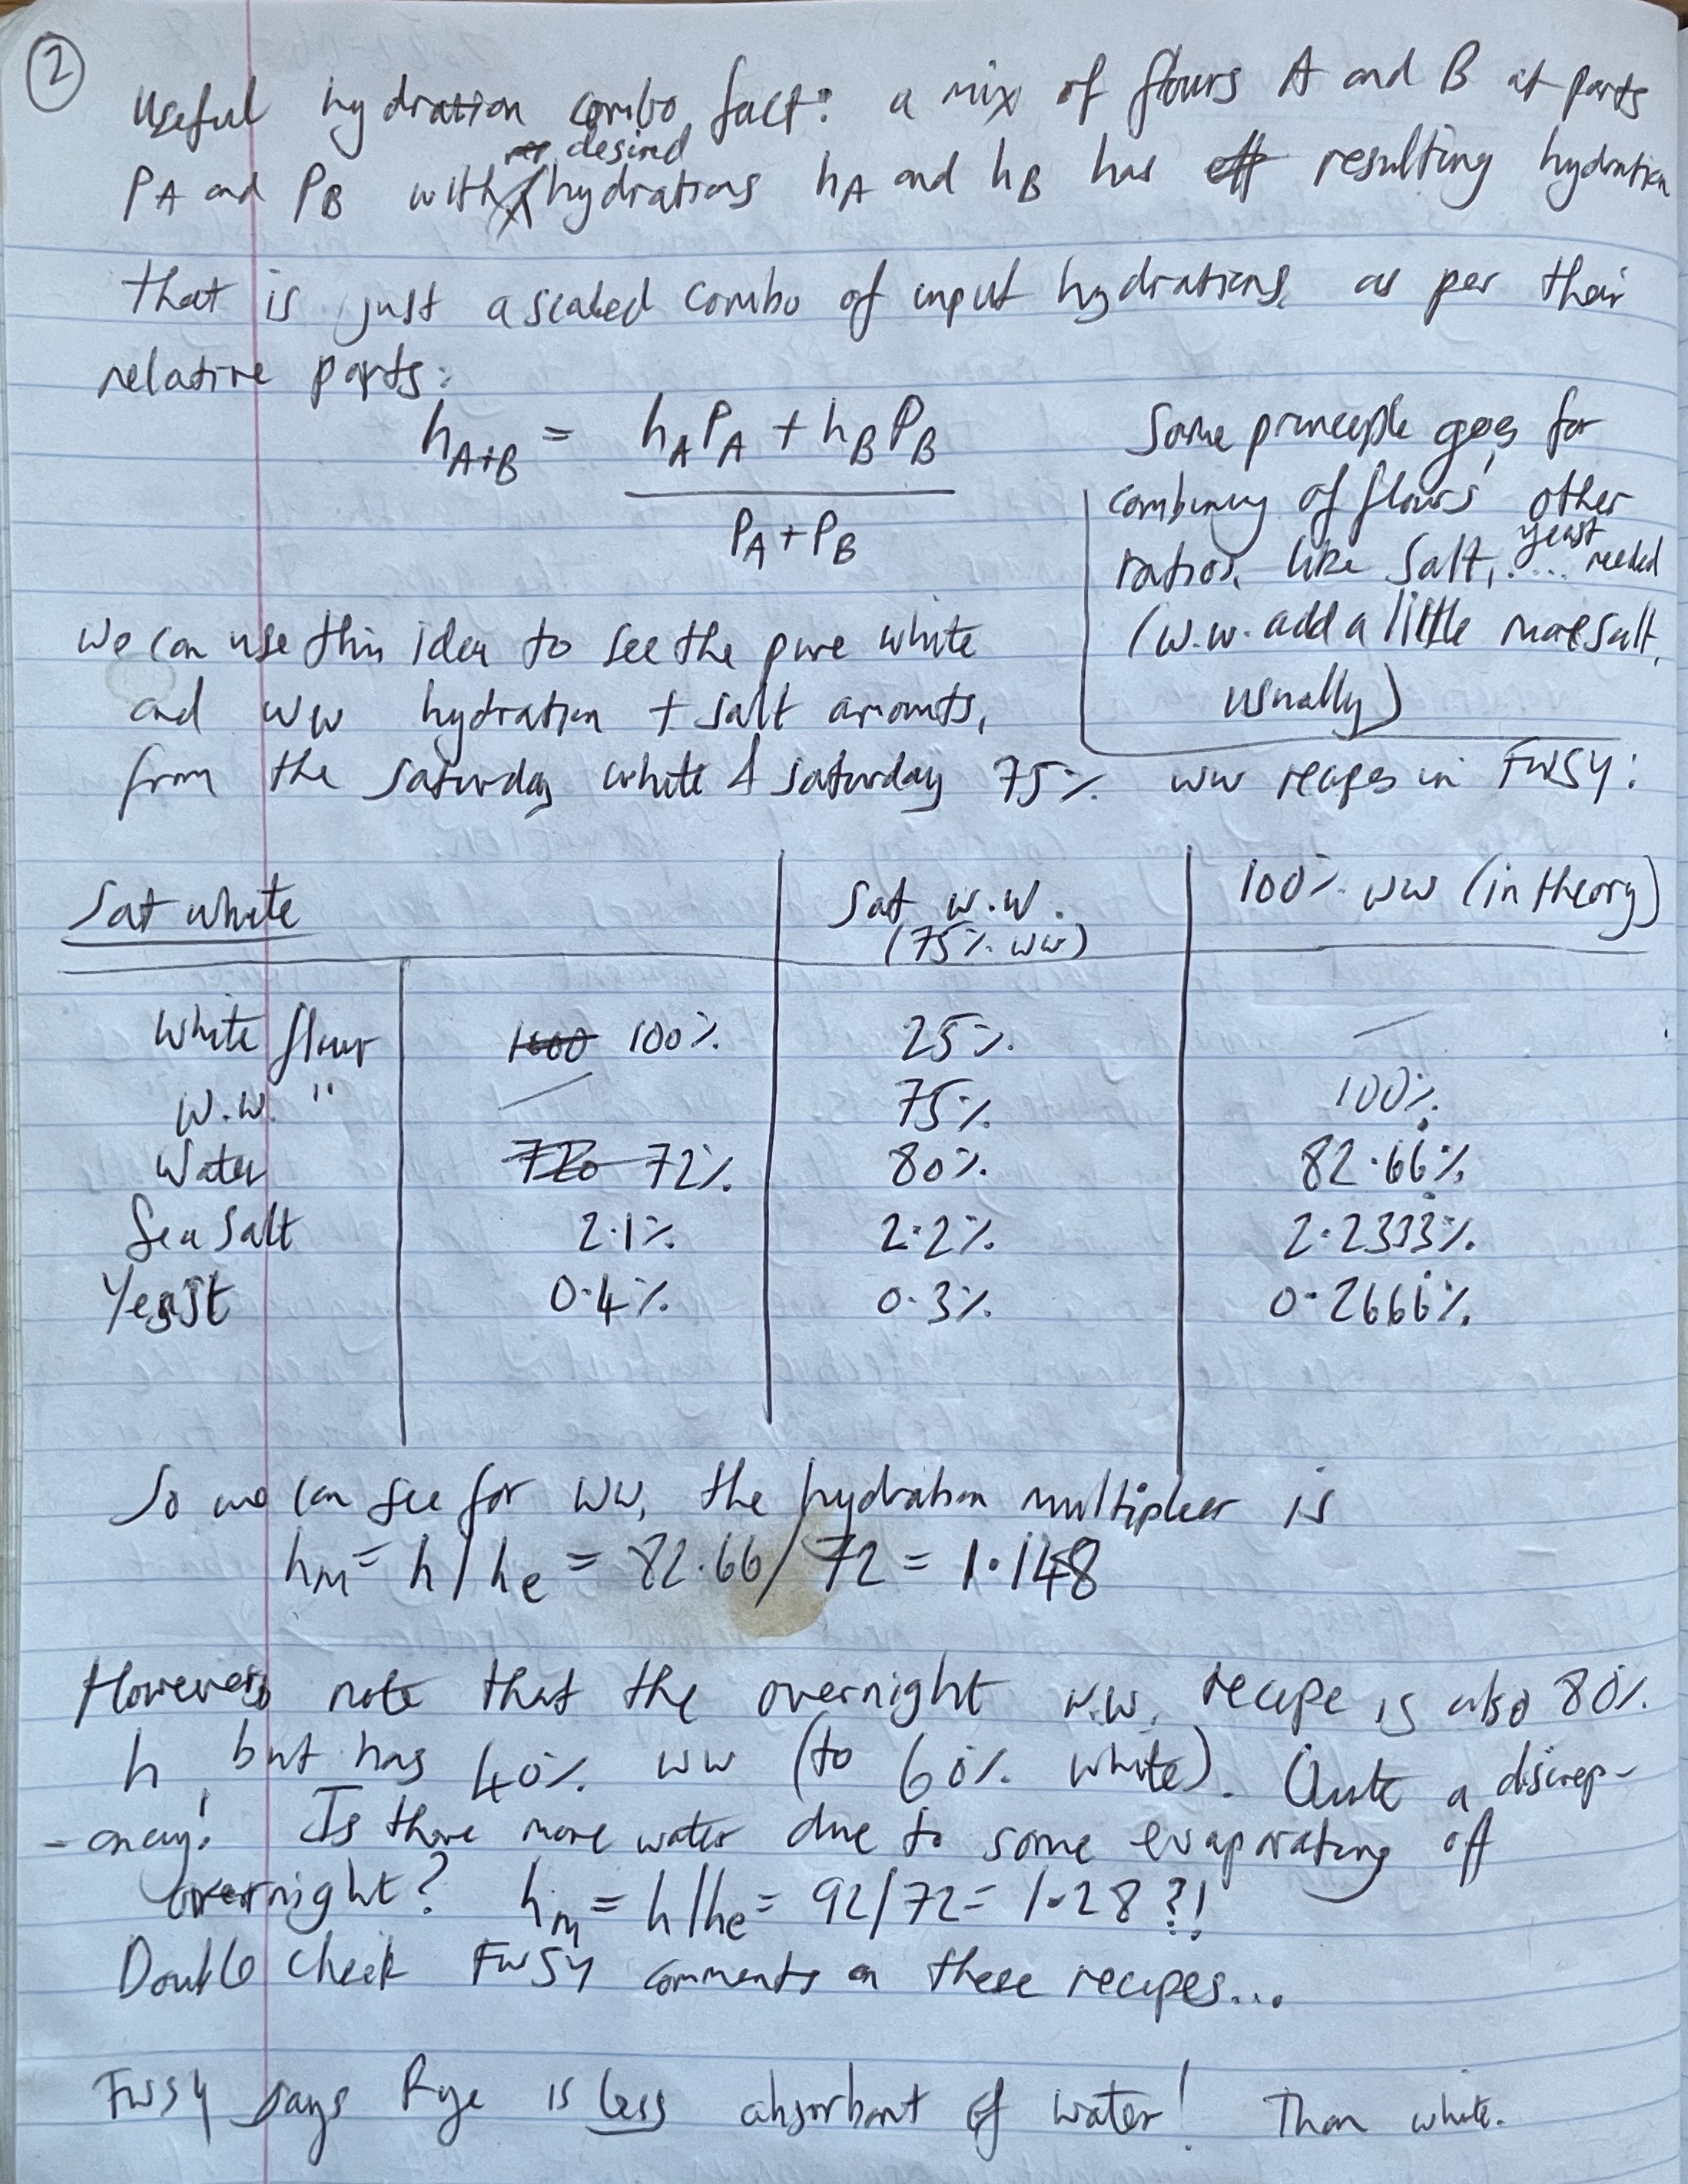 2
Useful hydration combo fact: a mix of flours A and B at parts
desired
PA and PB with hydrations hA and hB has eff resulting hydration
that is just a scaled combo of input hydrations, as per their
relative parts:
hA+B = hAPA + hBPB
PA + PB
Same principle goes for
combining of flours' other
yeast
ratios, like salt, .... needed
(w.w. add a little more salt,
usually)
We can use this idea to see the pure white
and ww hydration + salt amounts,
from the saturday white & saturday 75% ww recipes in FWSY:
Sat white
Sat w.w.
(75% ww)
100% ww (in theory)
White flour 1000 100% 25% —
W.W. " — 75% 100%
Water 720 72% 80% 82.66%
Sea Salt 2.1% 2.2% 2.2333%
Yeast 0.4% 0.3% 0.2666%
So we can see for ww, the hydration multiplier is
hm = h/he = 82.66/72 = 1.148
However, note that the overnight w.w. recipe is also 80%
h, but has 40% ww (to 60% white). Quite a discrep-
-ancy! Is there more water due to some evaporating off
overnight? hm = h/he = 92/72 = 1.28?!
Double check FWSY comments on these recipes...
FWSY says Rye is less absorbant of water! Than white.